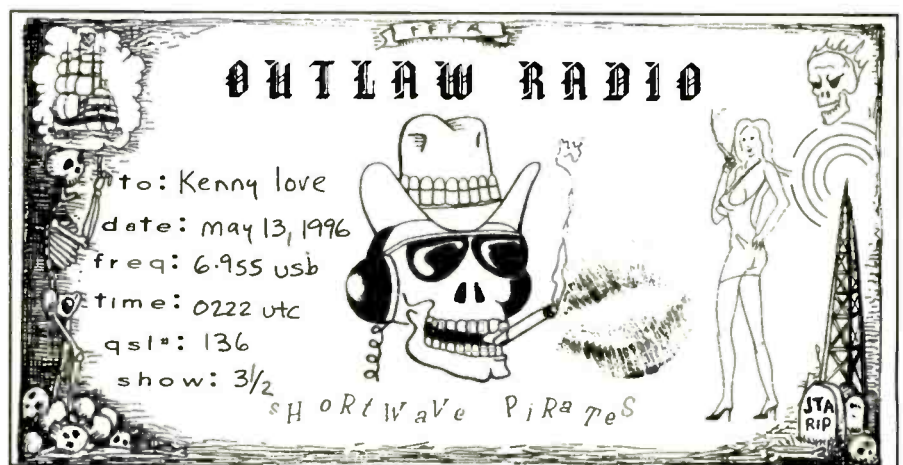 FFFR
OUTLAW RADIO
to: Kenny love
date: may 13, 1996
freq: 6.955 usb
time: 0222 utc
qsl#: 136
show: 3 1/2
sHoRtWaVe PiRaTeS
JTA
RIP